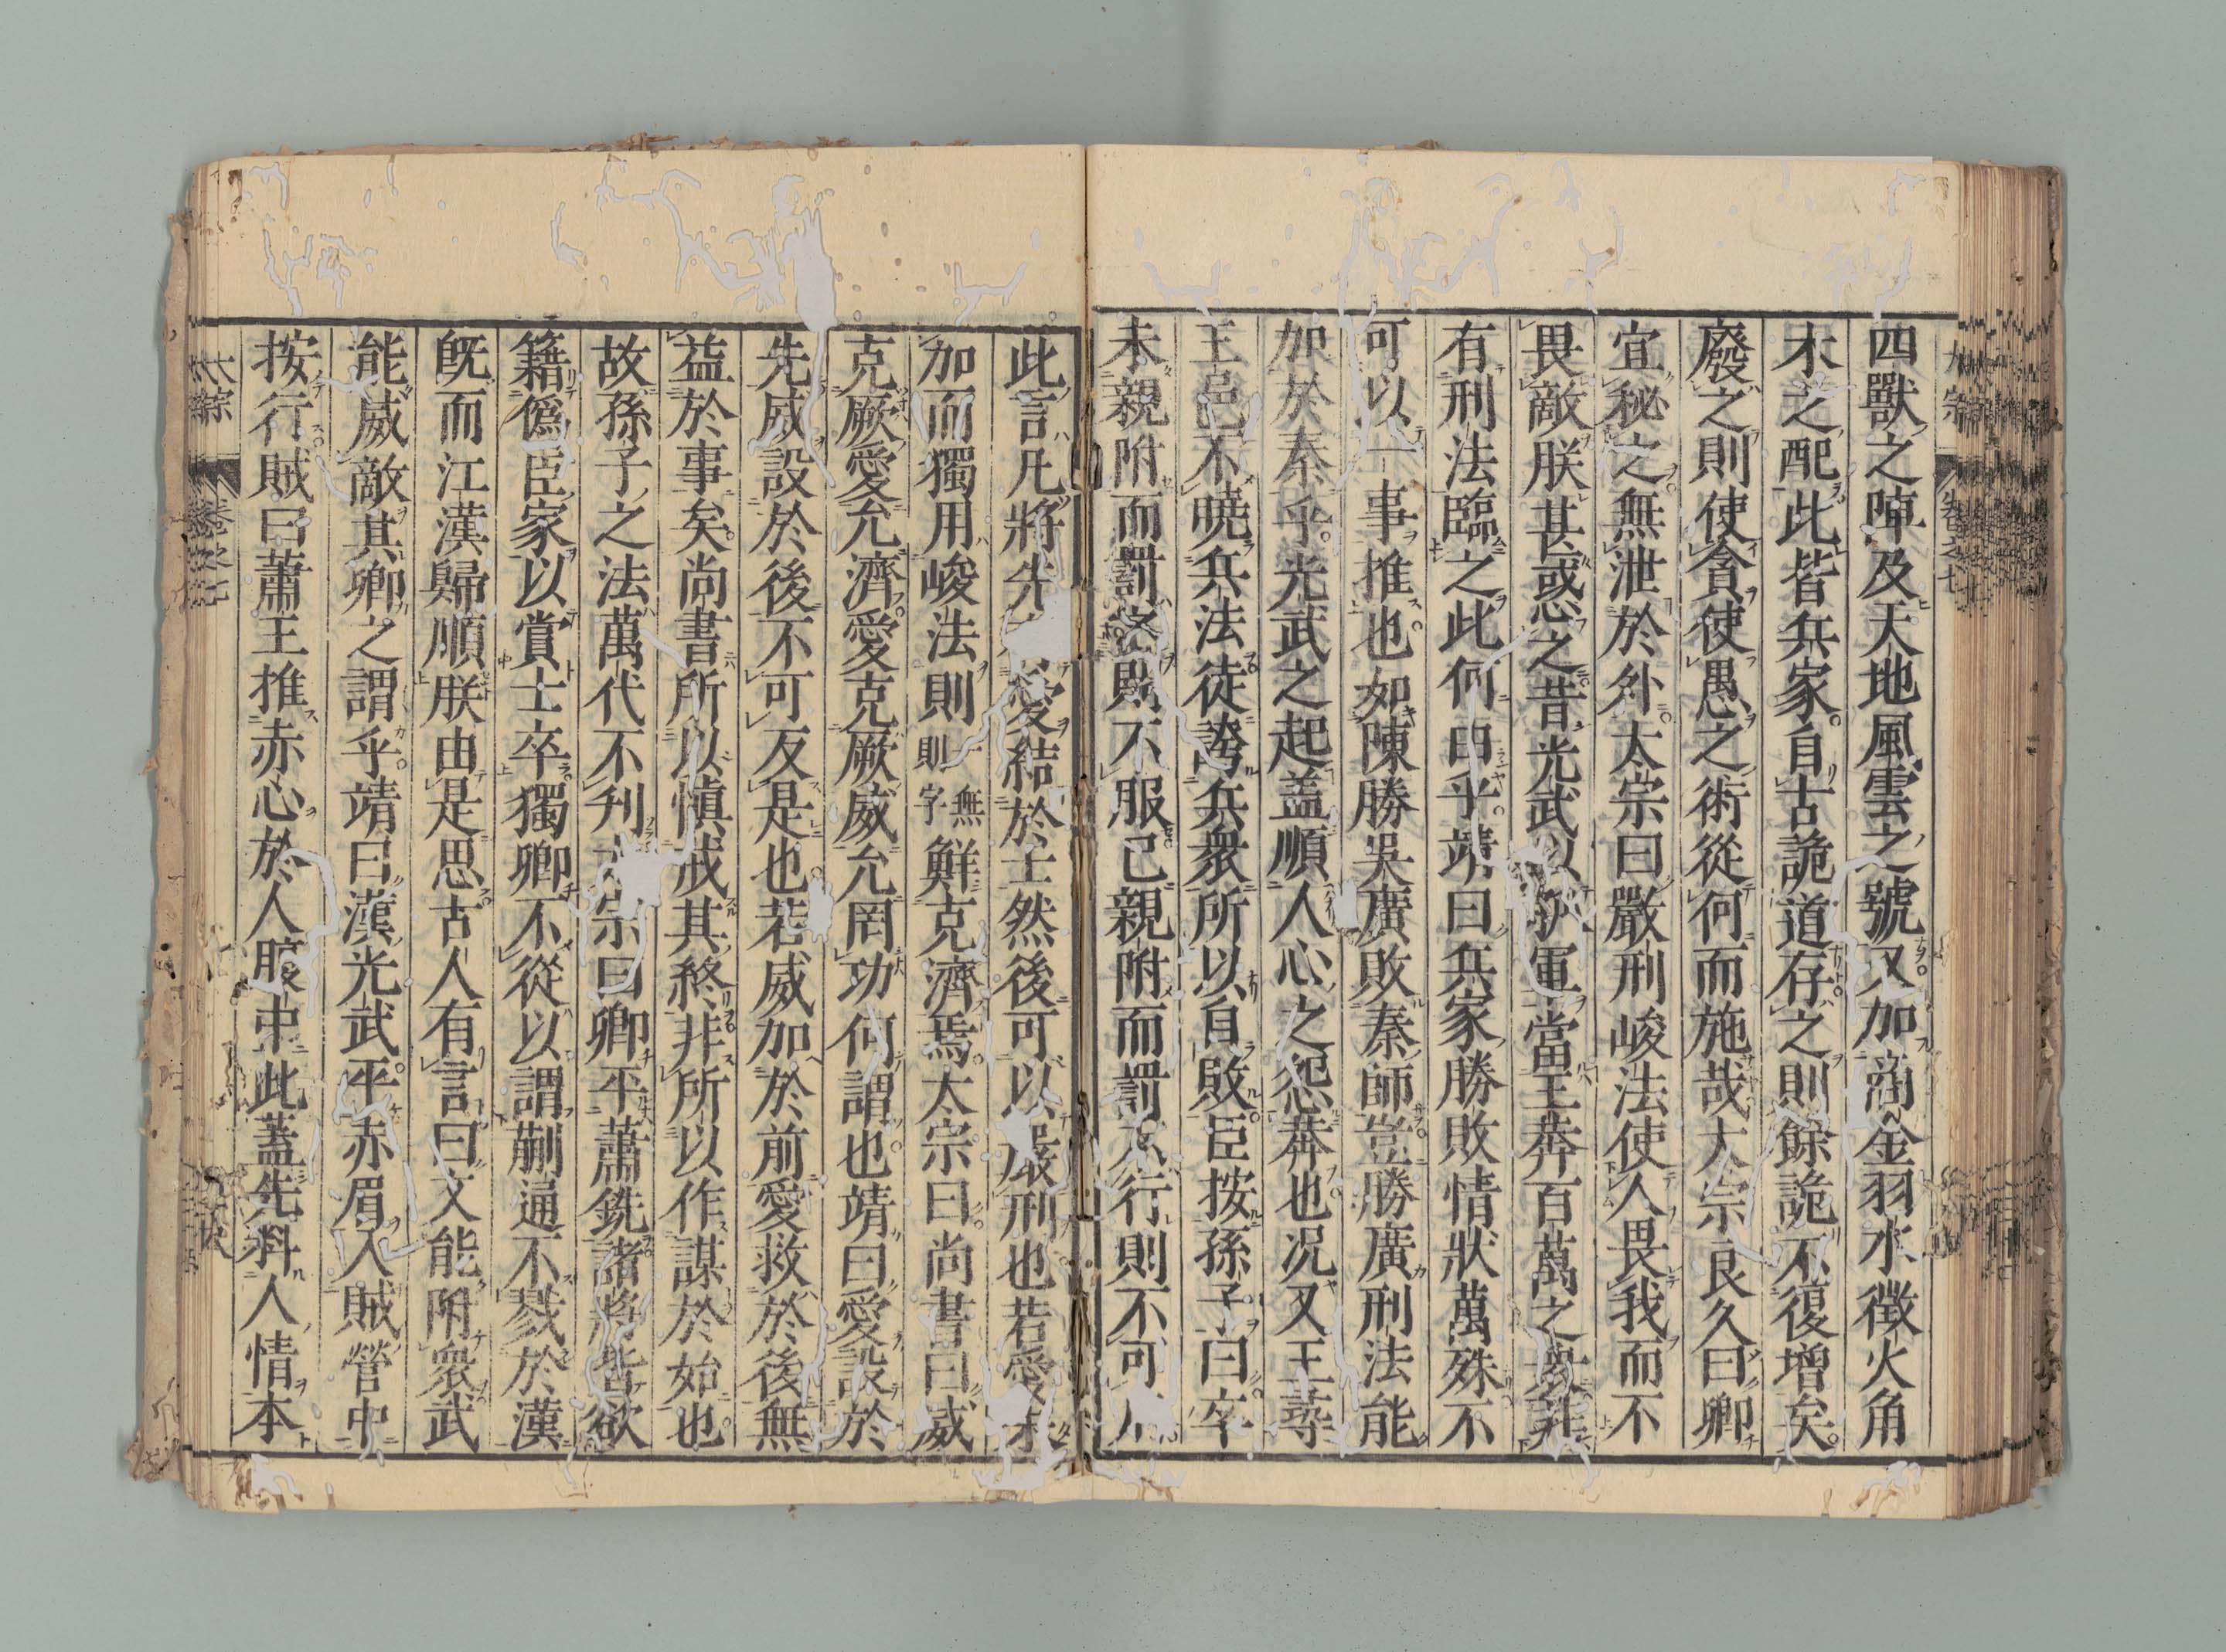 四獸之陣及天地風雲之號又加商金羽水徵火角
木之配此皆兵家自古詭道存之則餘詭不復增矣
廢之則使貪使愚之術從何而施哉太宗良久曰卿
宜秘之無泄於外太宗曰嚴刑峻法使人畏我而不
畏敵朕甚惑之昔光武以孤軍當王莽百萬之衆非
有刑法臨之此何由乎靖曰兵家勝敗情狀萬殊不
可以一事推也如陳勝吳廣敗秦師豈勝廣刑法能
加於秦乎光武之起盖順人心之怨莽也况又王尋
王邑不曉兵法徒誇兵衆所以自敗臣按孫子曰卒
未親附而罰之則不服已親附而罰不行則不可
此言凡將先愛結於士然後可以嚴刑也若愛未
加而獨用峻法則一無則字鮮克濟焉太宗曰尚書曰威
克厥愛允濟愛克厥威允罔功何謂也靖曰愛設於
先威設於後不可反是也若威加於前愛救於後無
益於事矣尚書所以慎戒其終非所以作謀於始也
故孫子之法萬代不刋太宗曰卿平蕭銑諸將皆欲
籍僞臣家以賞士卒獨卿不從以謂蒯通不戮於漢
旣而江漢歸順朕由是思古人有言曰文能附衆武
能威敵其卿之謂乎靖曰漢光武平赤眉入賊營中
按行賊曰蕭王推赤心於人腹中此蓋先料人情本
太宗
卷之七